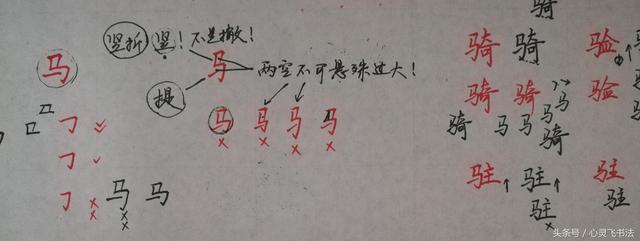 竖折 竖！不是撇！
马 马
提 两空不可悬殊过大！
马 马 马 马
马 马
骑
骑 骑 验
骑 骑 马 马 验
骑 马 马 骑 验
驻 驻 驻
驻 驻
头条号／心灵飞书法